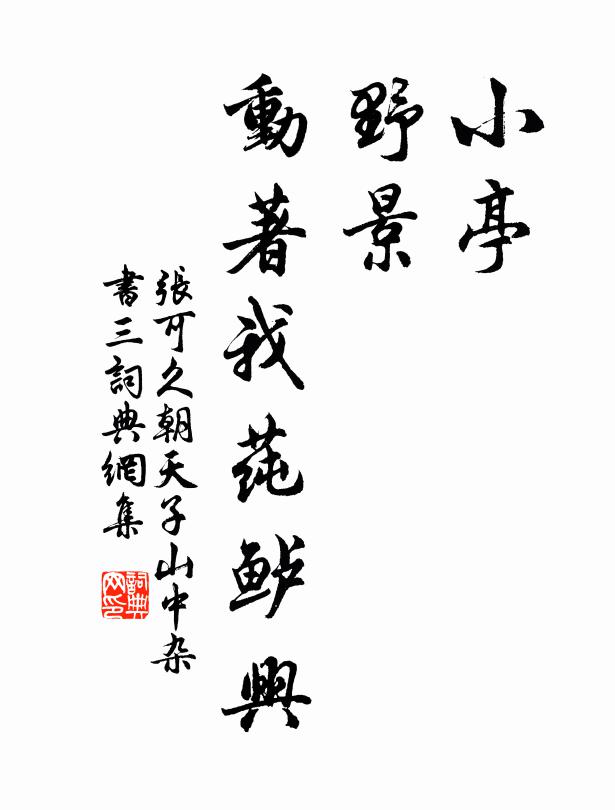 小亭
野景
動著我蒓鱸興
張可久朝天子山中杂
書三詞典網集
詞典网印